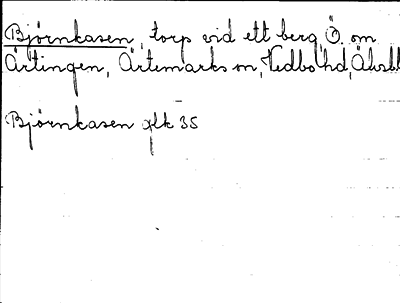 Bjørnkasen, torp vid ett berg, Ö. om
Ärtingen, Ärtemarks sn, Vedbo hd, Älvsbl
Bjørnkasen glk 35